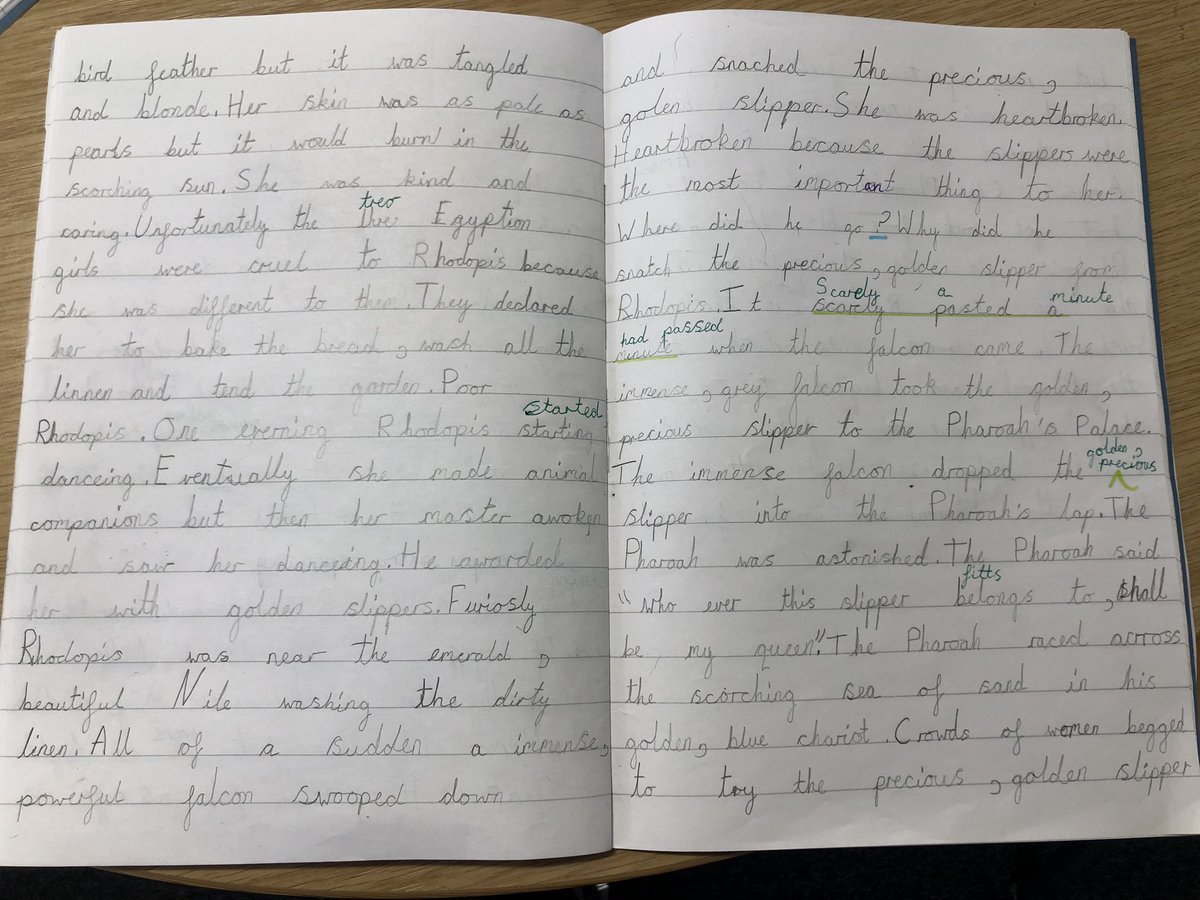 bird feather but it was tangled
and blonde. Her skin was as pale as
pearls but it would burn in the
scorching sun. She was kind and
treo
caring. Unfortunately the three Egyption
girls were cruel to Rhodopis because
she was different to them. They declared
her to bake the bread, wash all the
linnen and tend the garden. Poor
started
Rhodopis. One everning Rhodopis starting
danceing. Eventually she made animal
companions but then her master awoken
and saw her danceing. He awarded
her with golden slippers. Furiosly
Rhodopis was near the emerald,
beautiful Nile washing the dirty
linen. All of a sudden a immense,
powerful falcon swooped down
and snached the precious,
golen slipper. She was heartbroken.
Heartbroken because the slippers were
the most important thing to her.
Where did he go? Why did he
snatch the precious, golden slipper from
Scarely a minute
Rhodopis. It scarely pasted a
had passed
minute when the falcon came. The
immense, grey falcon took the golden,
precious slipper to the Pharoah's Palace.
golden,
The immense falcon dropped the precious
slipper into the Pharoah's lap. The
Pharoah was astonished. The Pharoah said
fitts
"who ever this slipper belongs to, shall
be my queen". The Pharoah raced acrross
the scorching sea of sand in his
golden, blue chariot. Crowds of women begged
to try the precious, golden slipper